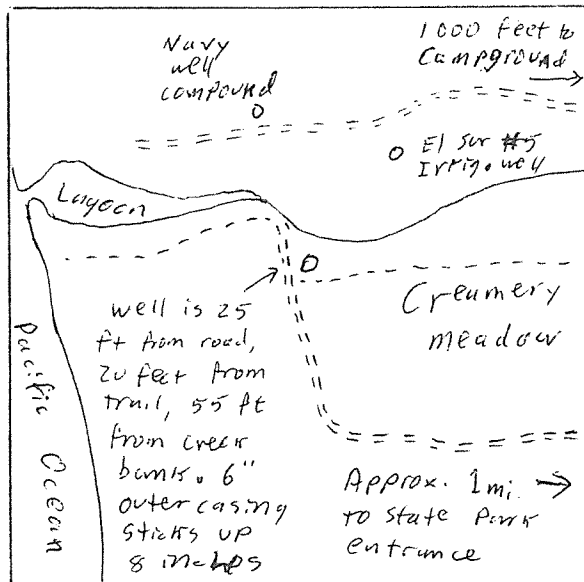 Navy
well
compound
1000 feet to
Campground
El Sur #5
Irrig. well
Lagoon
Creamery
meadow
well is 25
ft from road,
20 feet from
trail, 55 ft
from creek
bank. 6"
outer casing
sticks up
8 inches
Pacific Ocean
Approx. 1 mi.
to State Park
entrance